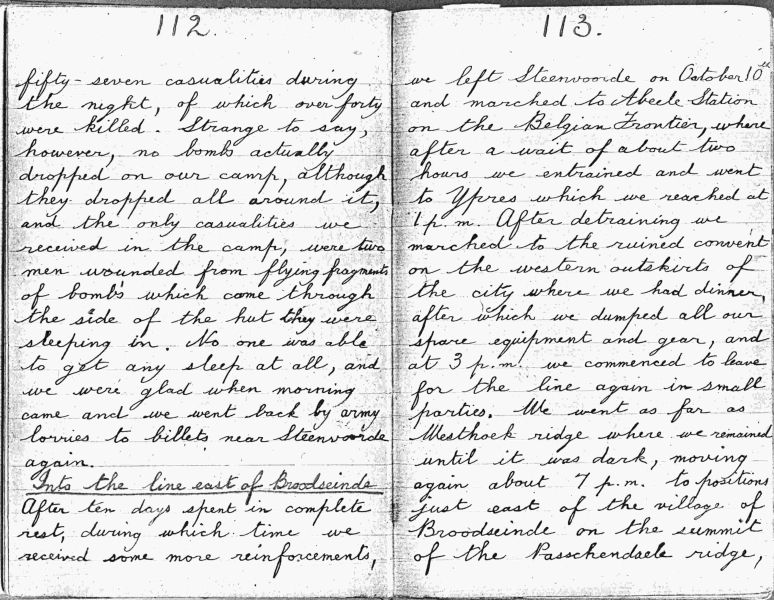 112.
fifty-seven casualities during
the night, of which over forty
were killed. Strange to say,
however, no bombs actually
dropped on our camp, although
they dropped all around it,
and the only casualities we
received in the camp, were two
men wounded from flying fragments
of bombs which came through
the side of the hut they were
sleeping in. No one was able
to get any sleep at all, and
we were glad when morning
came and we went back by army
lorries to billets near Steenvoorde
again.
Into the line east of Broodseinde
After ten days spent in complete
rest, during which time we
received some more reinforcements,
113.
we left Steenvoorde on October 10th
and marched to Abeele Station
on the Belgian Frontier, where
after a wait of about two
hours we entrained and went
to Ypres which we reached at
1 p.m. After detraining we
marched to the ruined convent
on the western outskirts of
the city where we had dinner,
after which we dumped all our
spare equipment and gear, and
at 3 p.m. we commenced to leave
for the line again in small
parties. We went as far as
Westhoek ridge where we remained
until it was dark, moving
again about 7 p.m. to positions
just east of the village of
Broodseinde on the summit
of the Passchendaele ridge,